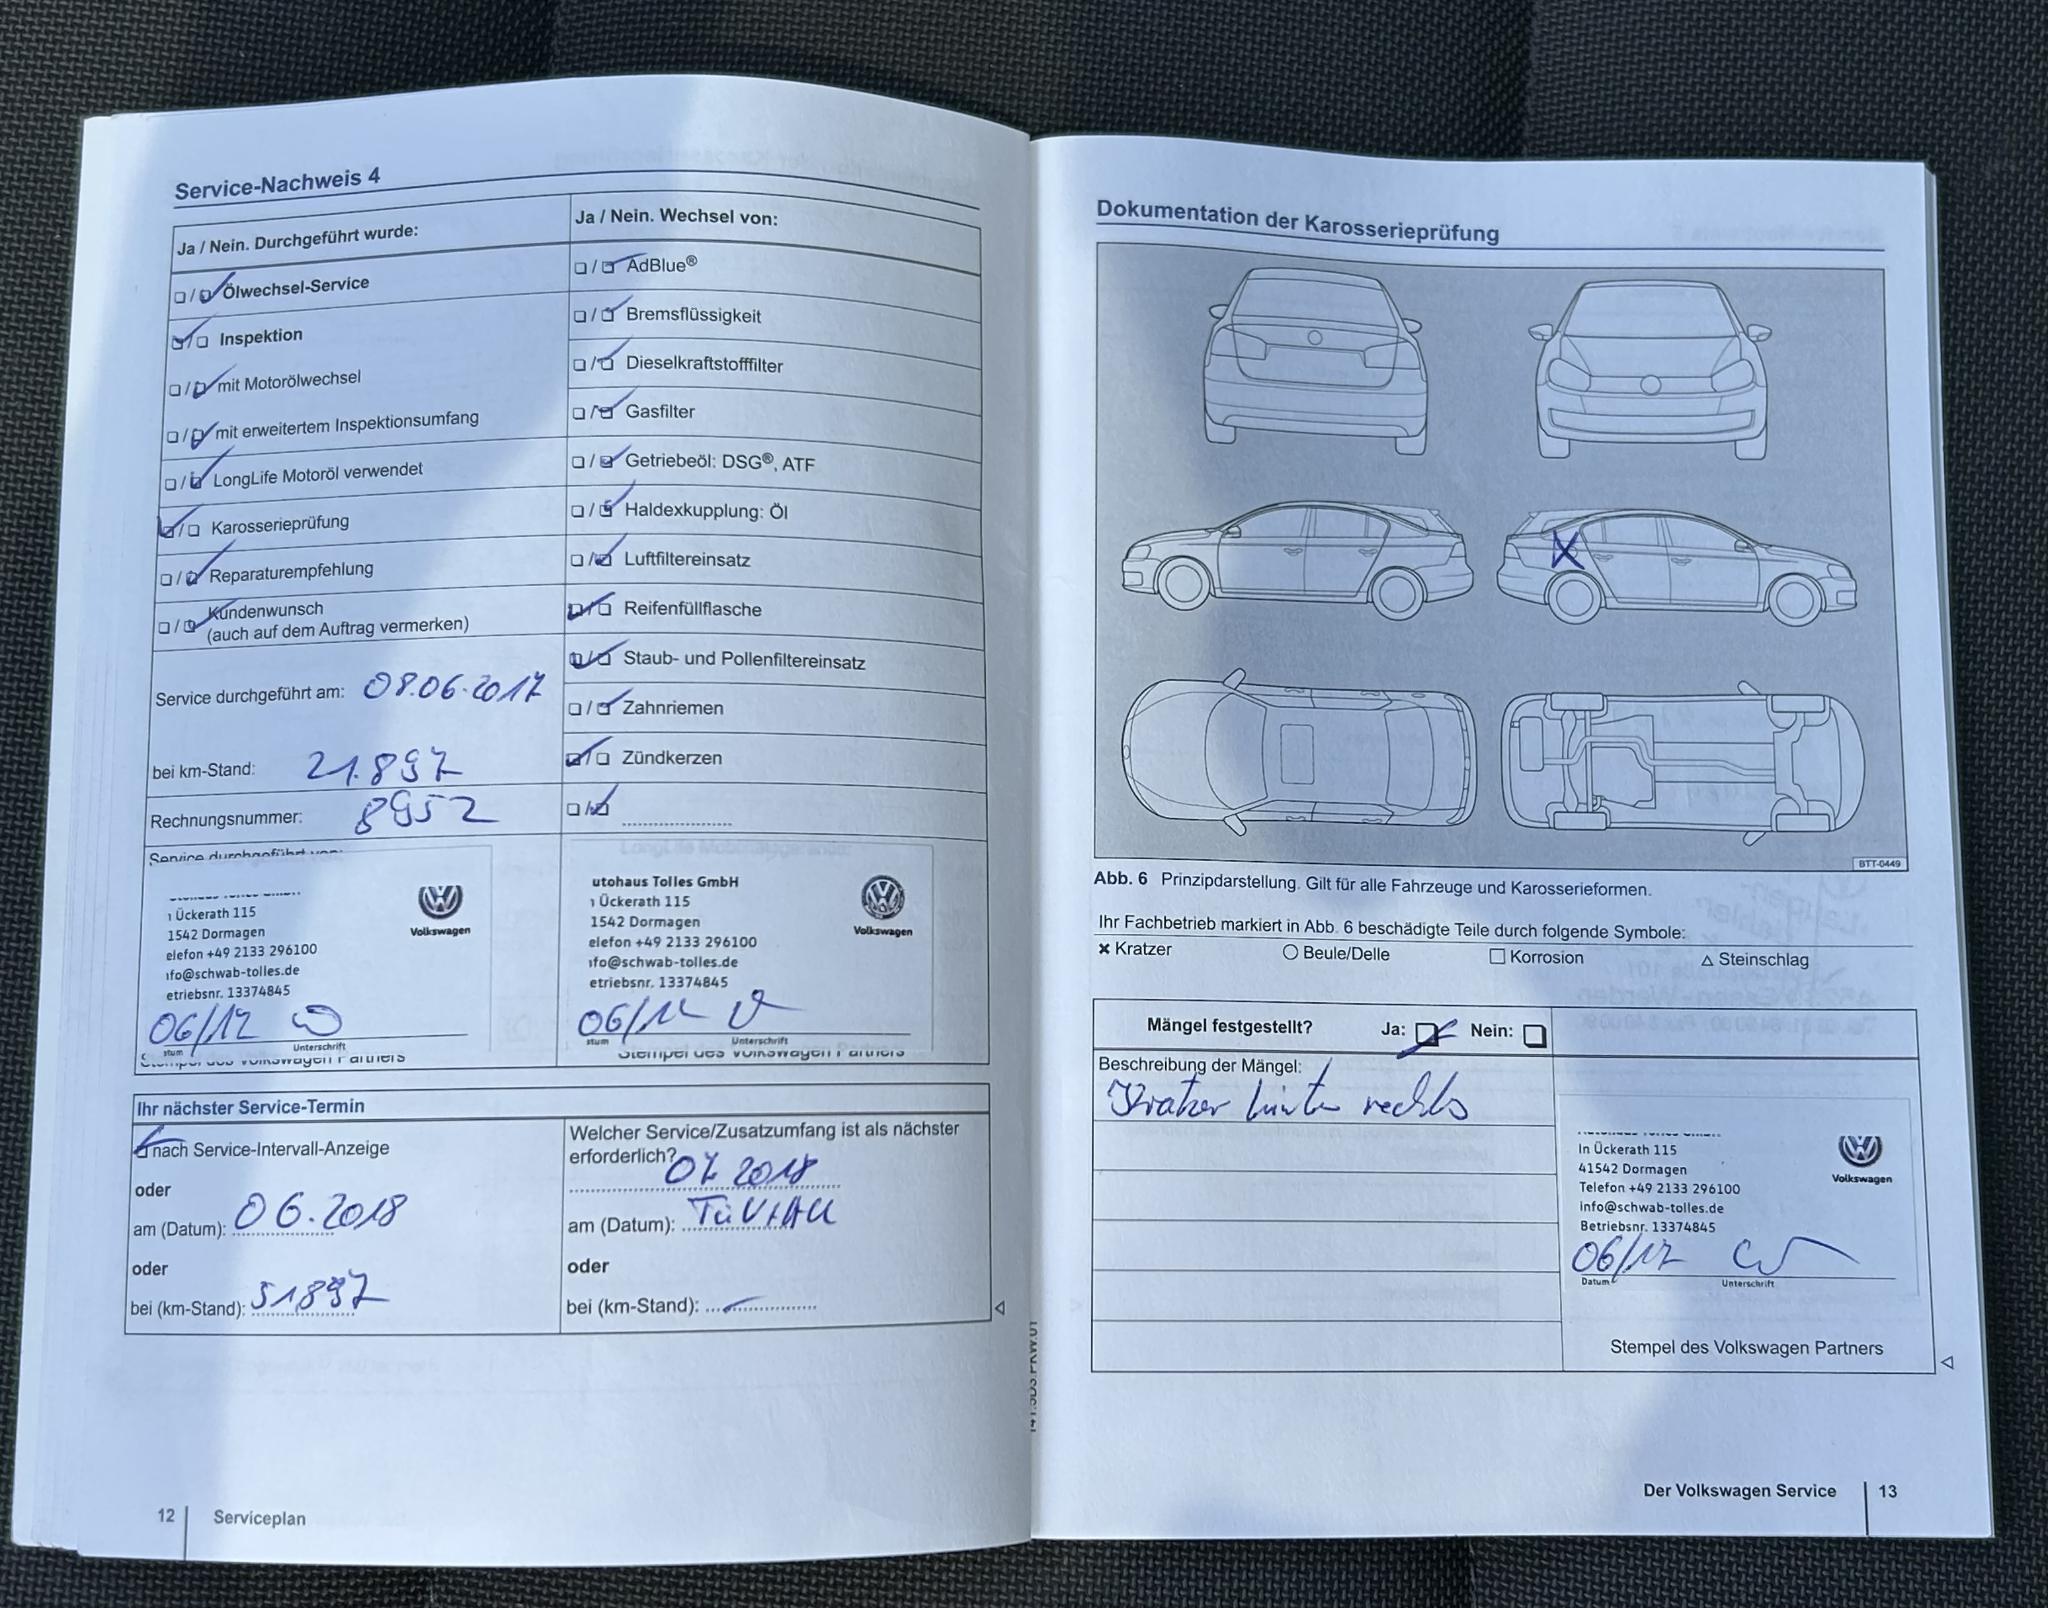 Service-Nachweis 4
Ja / Nein. Durchgeführt wurde:
Ölwechsel-Service
Inspektion
mit Motorölwechsel
mit erweitertem Inspektionsumfang
LongLife Motoröl verwendet
Karosserieprüfung
Reparaturempfehlung
Kundenwunsch
(auch auf dem Auftrag vermerken)
Service durchgeführt am: 08.06.2017
bei km-Stand: 21.897
Rechnungsnummer: 8952
Service durchgeführt von:
Ja / Nein. Wechsel von:
AdBlue®
Bremsflüssigkeit
Dieselkraftstofffilter
Gasfilter
Getriebeöl: DSG®, ATF
Haldexkupplung: Öl
Luftfiltereinsatz
Reifenfüllflasche
Staub- und Pollenfiltereinsatz
Zahnriemen
Zündkerzen
ı Ückerath 115
1542 Dormagen
elefon +49 2133 296100
ıfo@schwab-tolles.de
etriebsnr. 13374845
Volkswagen
06/17
tum Unterschrift
Stempel des Volkswagen Partners
utohaus Tolles GmbH
ı Ückerath 115
1542 Dormagen
elefon +49 2133 296100
ıfo@schwab-tolles.de
etriebsnr. 13374845
Volkswagen
06/17
tum Unterschrift
Stempel des Volkswagen Partners
Ihr nächster Service-Termin
nach Service-Intervall-Anzeige
oder
am (Datum): 06.2018
oder
bei (km-Stand): 51897
Welcher Service/Zusatzumfang ist als nächster
erforderlich?
07 2018
am (Datum): TüV+AU
oder
bei (km-Stand):
12 Serviceplan
Dokumentation der Karosserieprüfung
BTT-0449
Abb. 6 Prinzipdarstellung. Gilt für alle Fahrzeuge und Karosserieformen.
Ihr Fachbetrieb markiert in Abb. 6 beschädigte Teile durch folgende Symbole:
Kratzer Beule/Delle Korrosion Steinschlag
Mängel festgestellt? Ja: Nein:
Beschreibung der Mängel:
Kratzer hinten rechts
In Ückerath 115
41542 Dormagen
Telefon +49 2133 296100
info@schwab-tolles.de
Betriebsnr. 13374845
Volkswagen
06/17
Datum Unterschrift
Stempel des Volkswagen Partners
Der Volkswagen Service 13